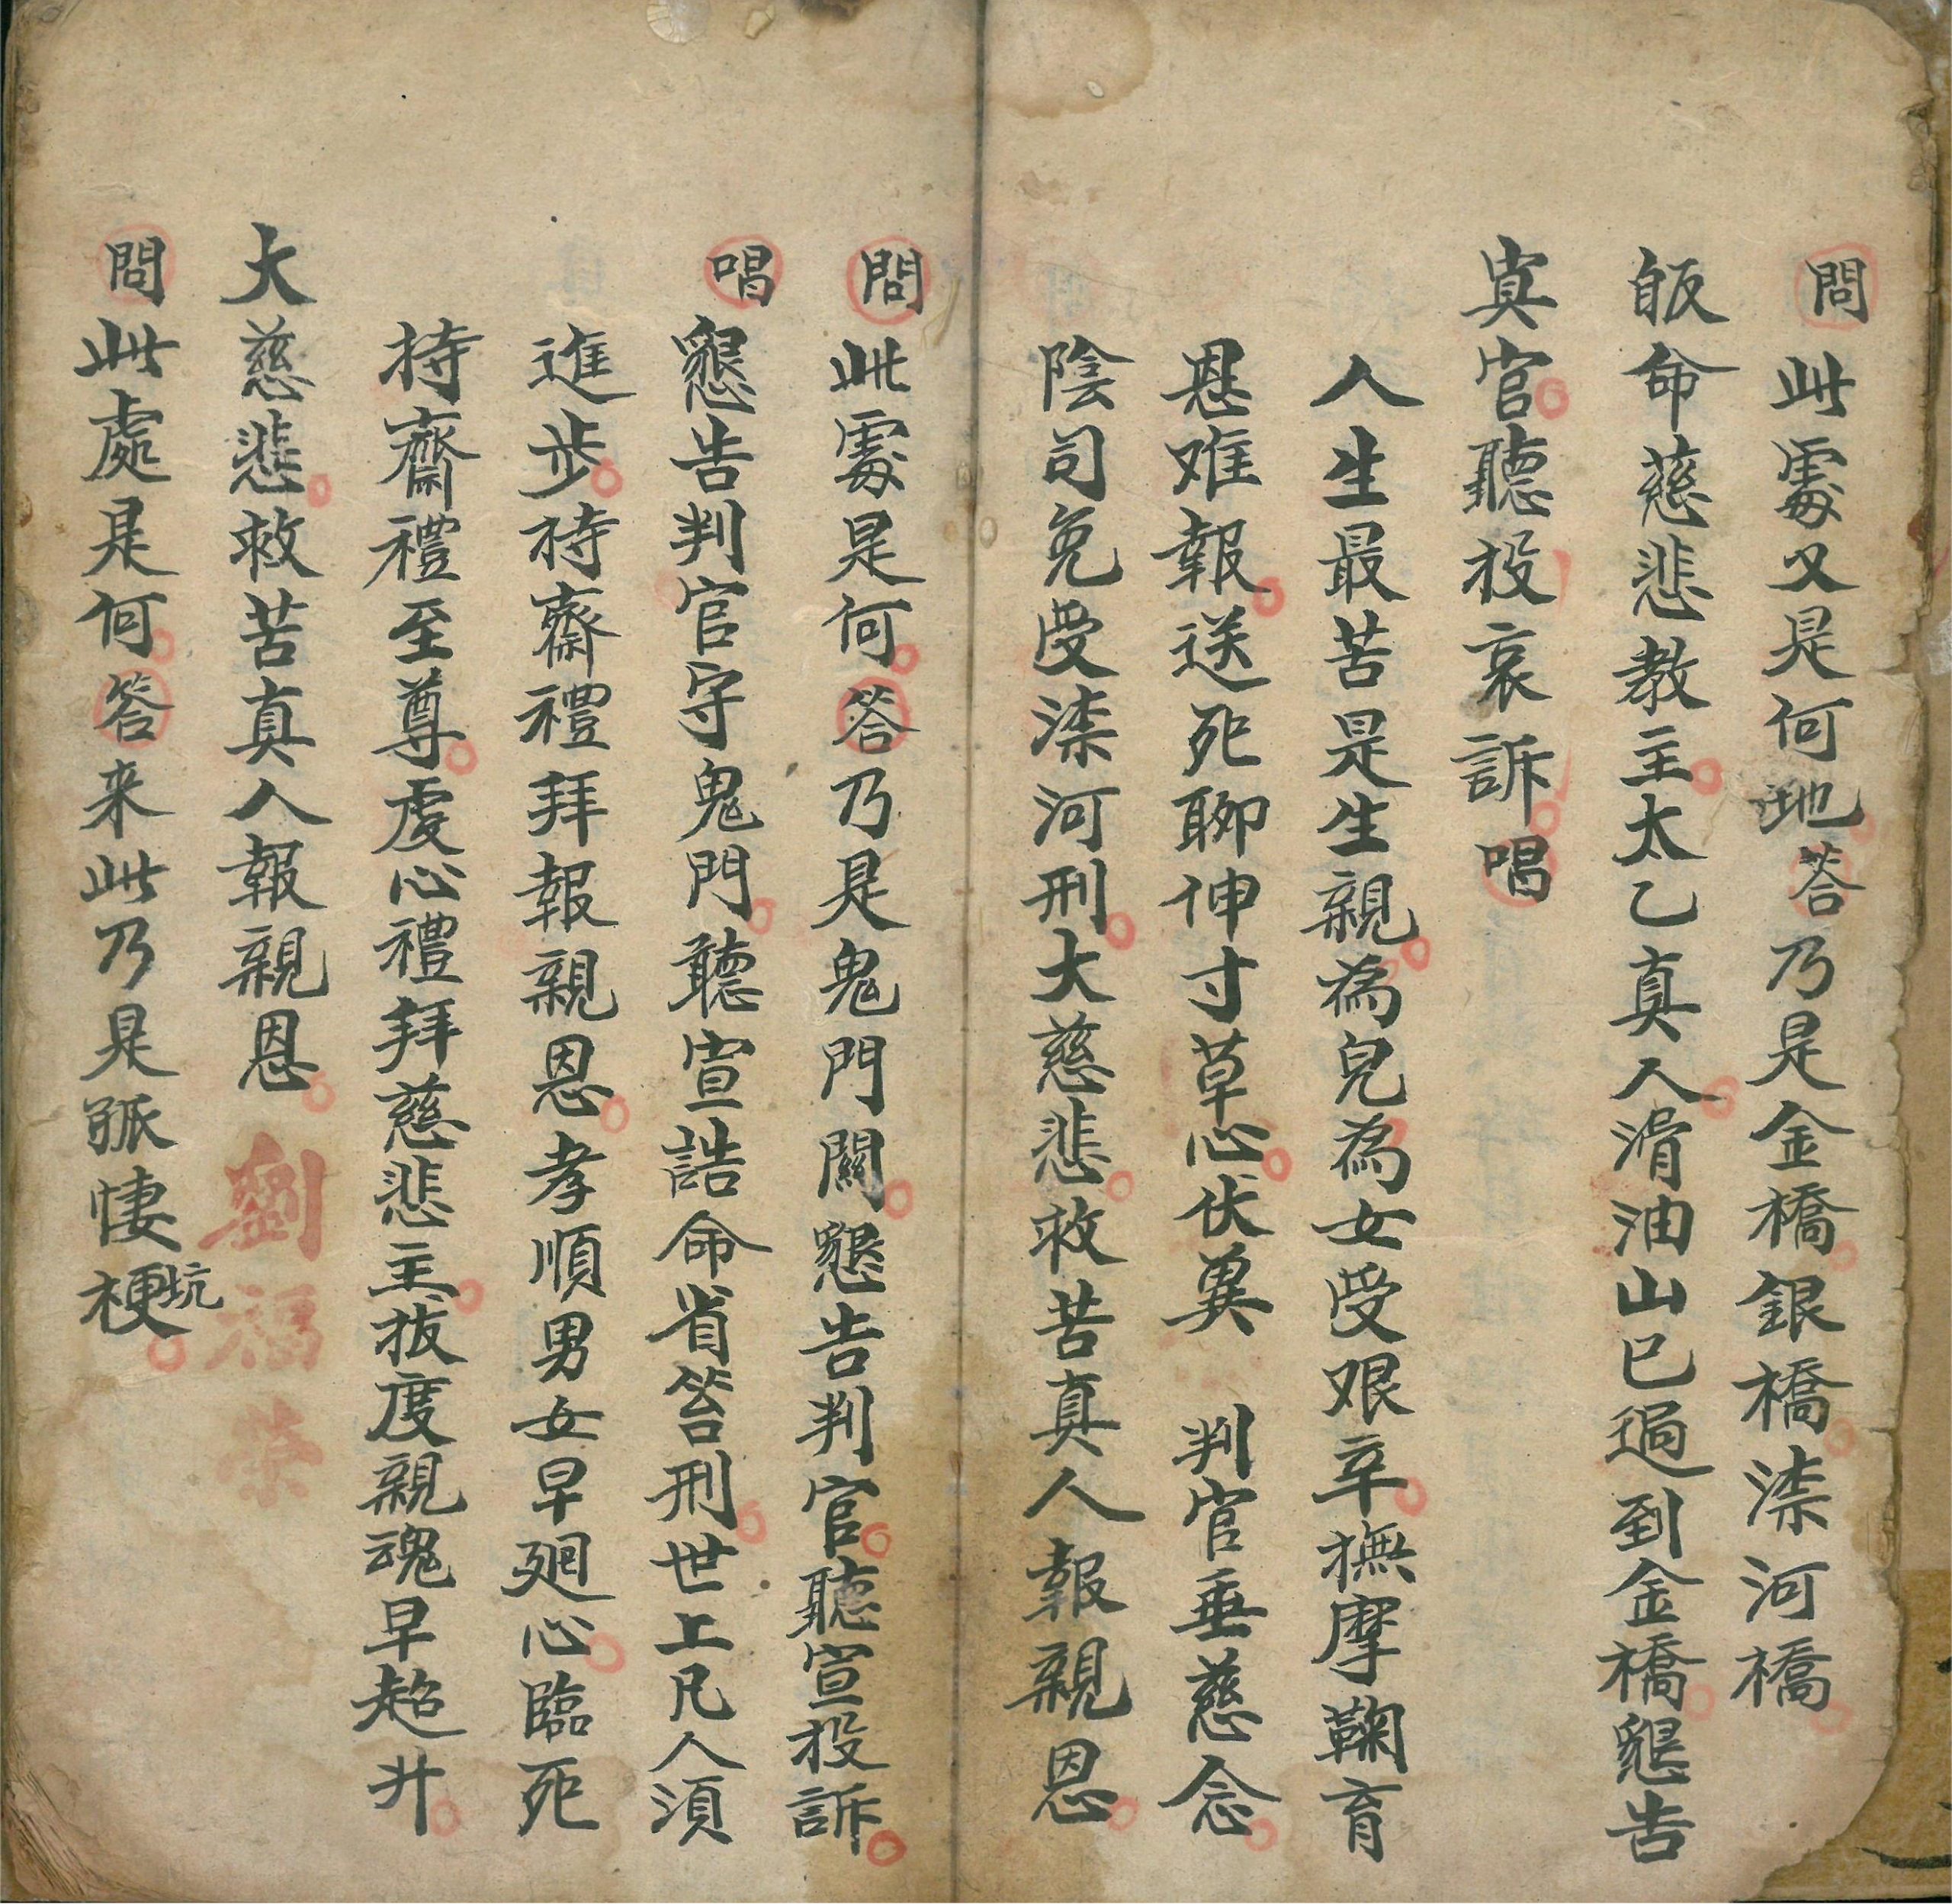 問此處又是何地答乃是金橋銀橋渿河橋
皈命慈悲教主太乙真人滑油山已過到金橋懇告
真官聽投哀訴唱
人生最苦是生親為兒為女受艰辛撫摩鞠育
恩难報送死聊伸寸草心伏冀判官垂慈念
陰司免受渿河刑大慈悲救苦真人報親恩
問此處是何答乃是鬼門關懇告判官聽宣投訴
唱懇告判官守鬼門聽宣誥命省笞刑世上凡人須
進步持齋禮拜報親恩孝順男女早廻心臨死
持齋禮至尊虔心禮拜慈悲主拔度親魂早超升
大慈悲救苦真人報親恩
劉福榮
問此處是何答来此乃是孤悽埂坑